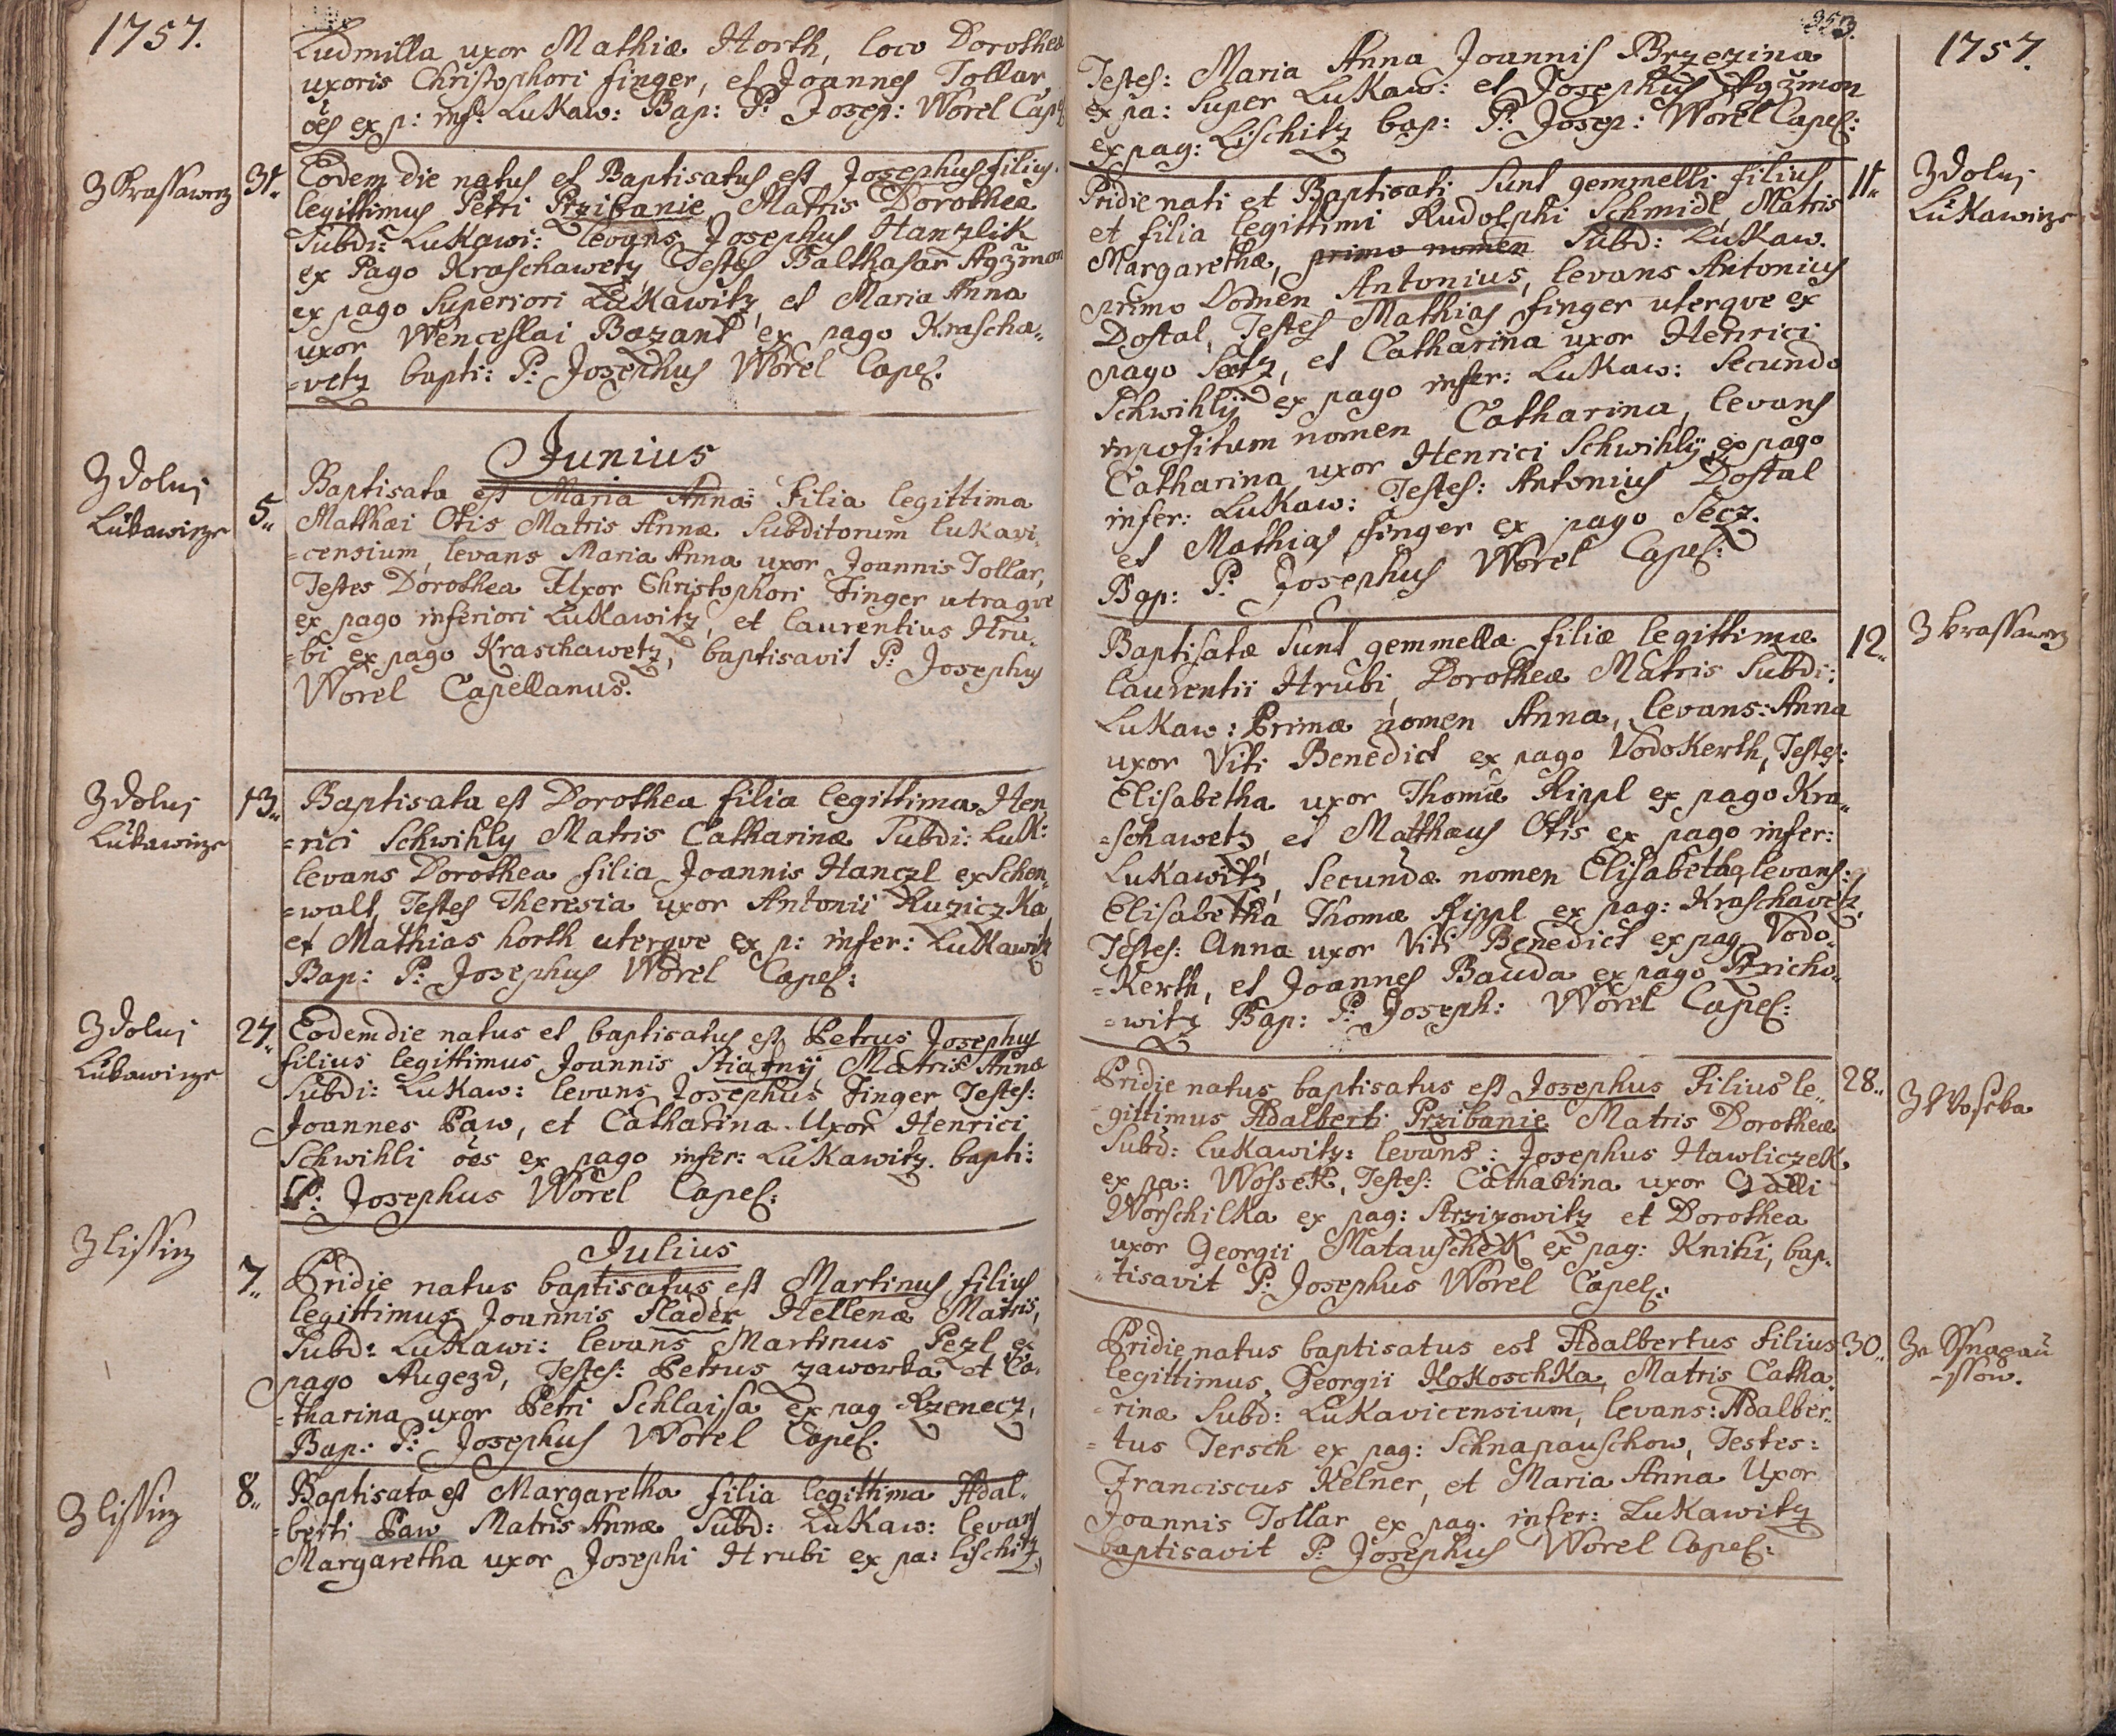 1757.
Ludmilla uxor Mathiæ Horth, loco Dorothea
uxoris Christophori finger, et Joannes Tollar
ões ex p: inf: Lukaw: Bap: P: Josep: Worel Capel
Z Krassawcz
31.. Eodem die natus et Baptisatus est Josephus filius
legittimus Petri Przibanie, Matris Dorotheæ
Subdi: Lukawi: levans Josephus Hanzlik
ex Pago Kraschawetz, Testes Balthasar
ex pago Superiori Lukawitz, et Maria Anna
uxor Wenceslai Bazant ex pago Krascha=
=vetz bapti: P: Josephus Worel Capel:
Junius
Z Dolnj
Lukawicze
5.. Baptisata est Maria Anna Filia legittima
Matthæi Otis Matris Annæ Subditorum lukavi=
=censium, levans Maria Anna uxor Joannis Tollar,
Testes Dorothea Uxor Christophori Finger utraqve
ex pago inferiori Lukawitz, et laurentius Hru=
=bi ex pago Kraschawetz, baptisavit P: Josephus
Worel Capellanus.
Z dolnj
Lukawicze
13.. Baptisata est Dorothea filia legittima Hen
=rici Schwihly Matris Catharinæ Subdi: Luk:
levans Dorothea filia Joannis Hanczl ex Schön=
=walt, Testes Theresia uxor Antonii Ruziczka,
et Mathias horth uterqve ex p: infer: Lukawitz
Bap: P: Josephus Worel Capel:
Z dolnj
Lukawicze
27.. Eodem die natus et baptisatus est Petrus Josephus
filius legittimus Joannis Stiastnÿ Matris Annæ
Subdi: Lukaw: levans Josephus Finger Testes:
Joannes Paw, et Catharina Uxor Henrici
Schwihli ões ex pago infer: Lukawitz. bapti:
P: Josephus Worel Capel:
Julius
Z lissicz
7.. Pridie natus baptisatus est Martinus filius
legittimus Joannis Sladek, Hellenæ Matris,
Subd: Lukawi: levans Martinus Pezl ex
pago Augezd, Testes: Petrus zaworka et Ca=
=tharina uxor Petri Schlaissa ex pag Rzenecz,
Bap: P: Josephus Worel Capel:
Z lissicz
8.. Baptisata est Margaretha filia legittima Adal=
=berti Paw Matris Annæ Subd: Lukaw: levans
Margaretha uxor Josephi Hrubi ex pa: lischitz,
353.
1757.
Testes: Maria Anna Joannis Brzezina
ex pa: Super Lukaw: et Josephus
ex pag: Lischitz bap: P: Josep: Worel Capel:
Z dolnj
Lukawicze
11.. Pridie nati et Baptisati Sunt gemmelli filius
et filia legittimi Rudolphi Schmidt, Matris
Margarethæ, primo nomen Subd: Lukaw.
primo Nomen Antonius, levans Antonius
Dostal, Testes Mathias finger uterqve ex
pago Setz, et Catharina uxor Henrici
Schwihlÿ ex pago infer: Lukaw: Secundo
impositum nomen Catharina, levans
Catharina uxor Henrici Schwihlÿ ex pago
infer: Lukaw: Testes: Antonius Dostal
et Mathias finger ex pago Secz.
Bap: P: Josephus Worel Capel:
Z krassawcz
12.. Baptisatæ Sunt gemmellæ filiæ legittimæ
laurentii Hrubi, Dorotheæ Matris Subdi:
Lukaw: Primæ nomen Anna, levans: Anna
uxor Viti Benedict ex pago Vodokerth, Testes:
Elisabetha uxor Thomæ Rippl ex pago Kra=
=schawetz, et Matthæus Otis ex pago infer:
Lukawitz, Secundæ nomen Elisabetha, levans:
Elisabetha Thomæ Rippl ex pag: Kraschavetz,
Testes: Anna uxor Viti Benedict ex pag Vodo=
=kerth, et Joannes Bauda ex pago Przicho=
=witz Bap: P: Joseph: Worel Capel:
Z Woseka
28.. Pridie natus baptisatus est Josephus Filius le=
gittimus Adalberti Przibanie Matris Dorotheæ
Subd: Lukawitz: levans: Josephus Hawliczek
ex pa: Wossek, Testes: Catharina uxor Galli
Worschilka ex pag: Strzizowitz et Dorothea
uxor Georgii Matauschek ex pag: Knihi, bap=
=tisavit P: Josephus Worel Capel:
Ze Ssnapau
=ssow.
30.. Pridie natus baptisatus est Adalbertus filius
legittimus, Georgii Kokoschka, Matris Catha=
=rinæ Subd: Lukavicensium, levans: Adalber=
=tus Jersch ex pag: Schnapauschow, Testes:
Franciscus Kelner, et Maria Anna Uxor
Joannis Tollar ex pag. infer: Lukawitz
baptisavit P: Josephus Worel Capel: